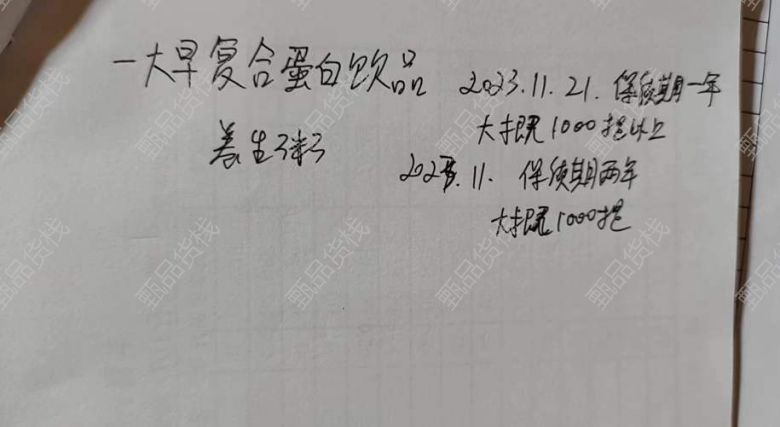 一大早复合蛋白饮品 2023.11.21. 保质期一年
大概1000提以上
养生粥 2023.11. 保质期两年
大概1000提
甄品货栈
甄品货栈
甄品货栈
甄品货栈
甄品货栈
甄品货栈
甄品货栈
甄品货栈
甄品货栈